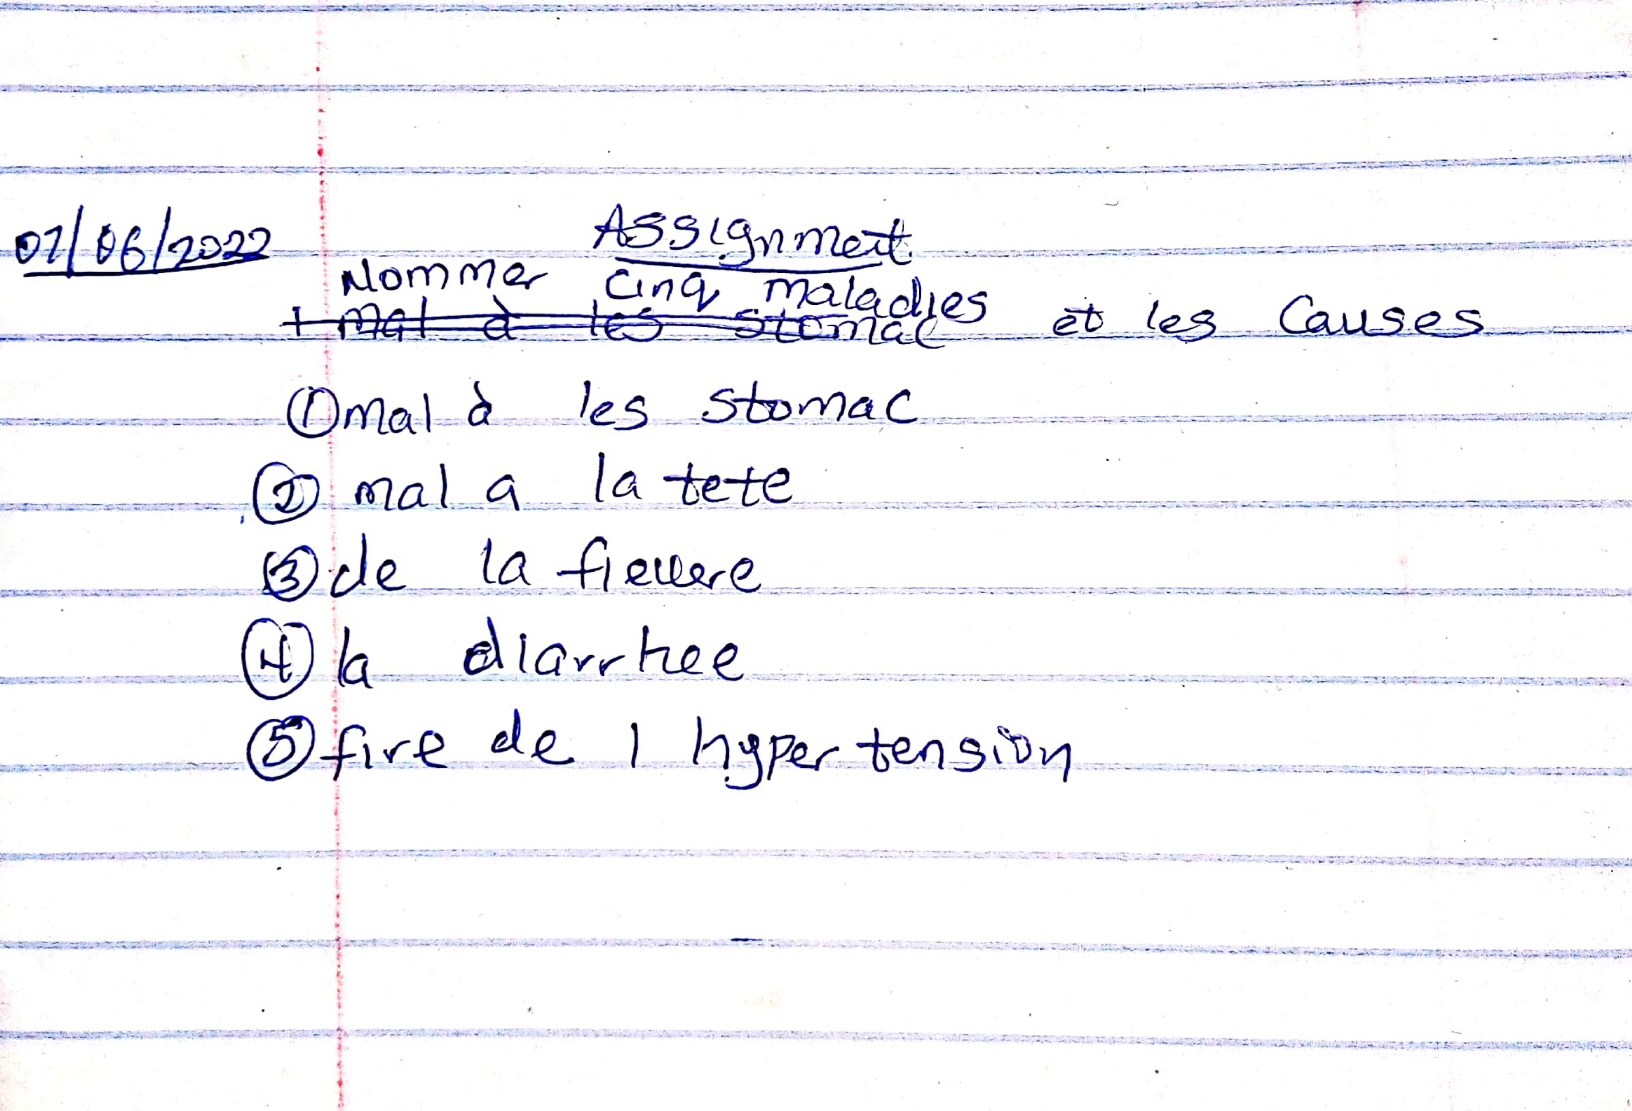 07/06/2022 Assignment
Nommer cinq maladies et les causes
+ mal à les stomac
① mal à les stomac
② mal a la tete
③ de la fievere
④ la diarrhee
⑤ fire de l hyper tension